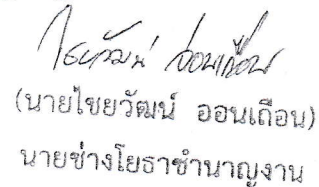 ไชยวัฒน์ ออนเถือน
(นายไชยวัฒน์ ออนเถือน)
นายช่างโยธาชำนาญงาน